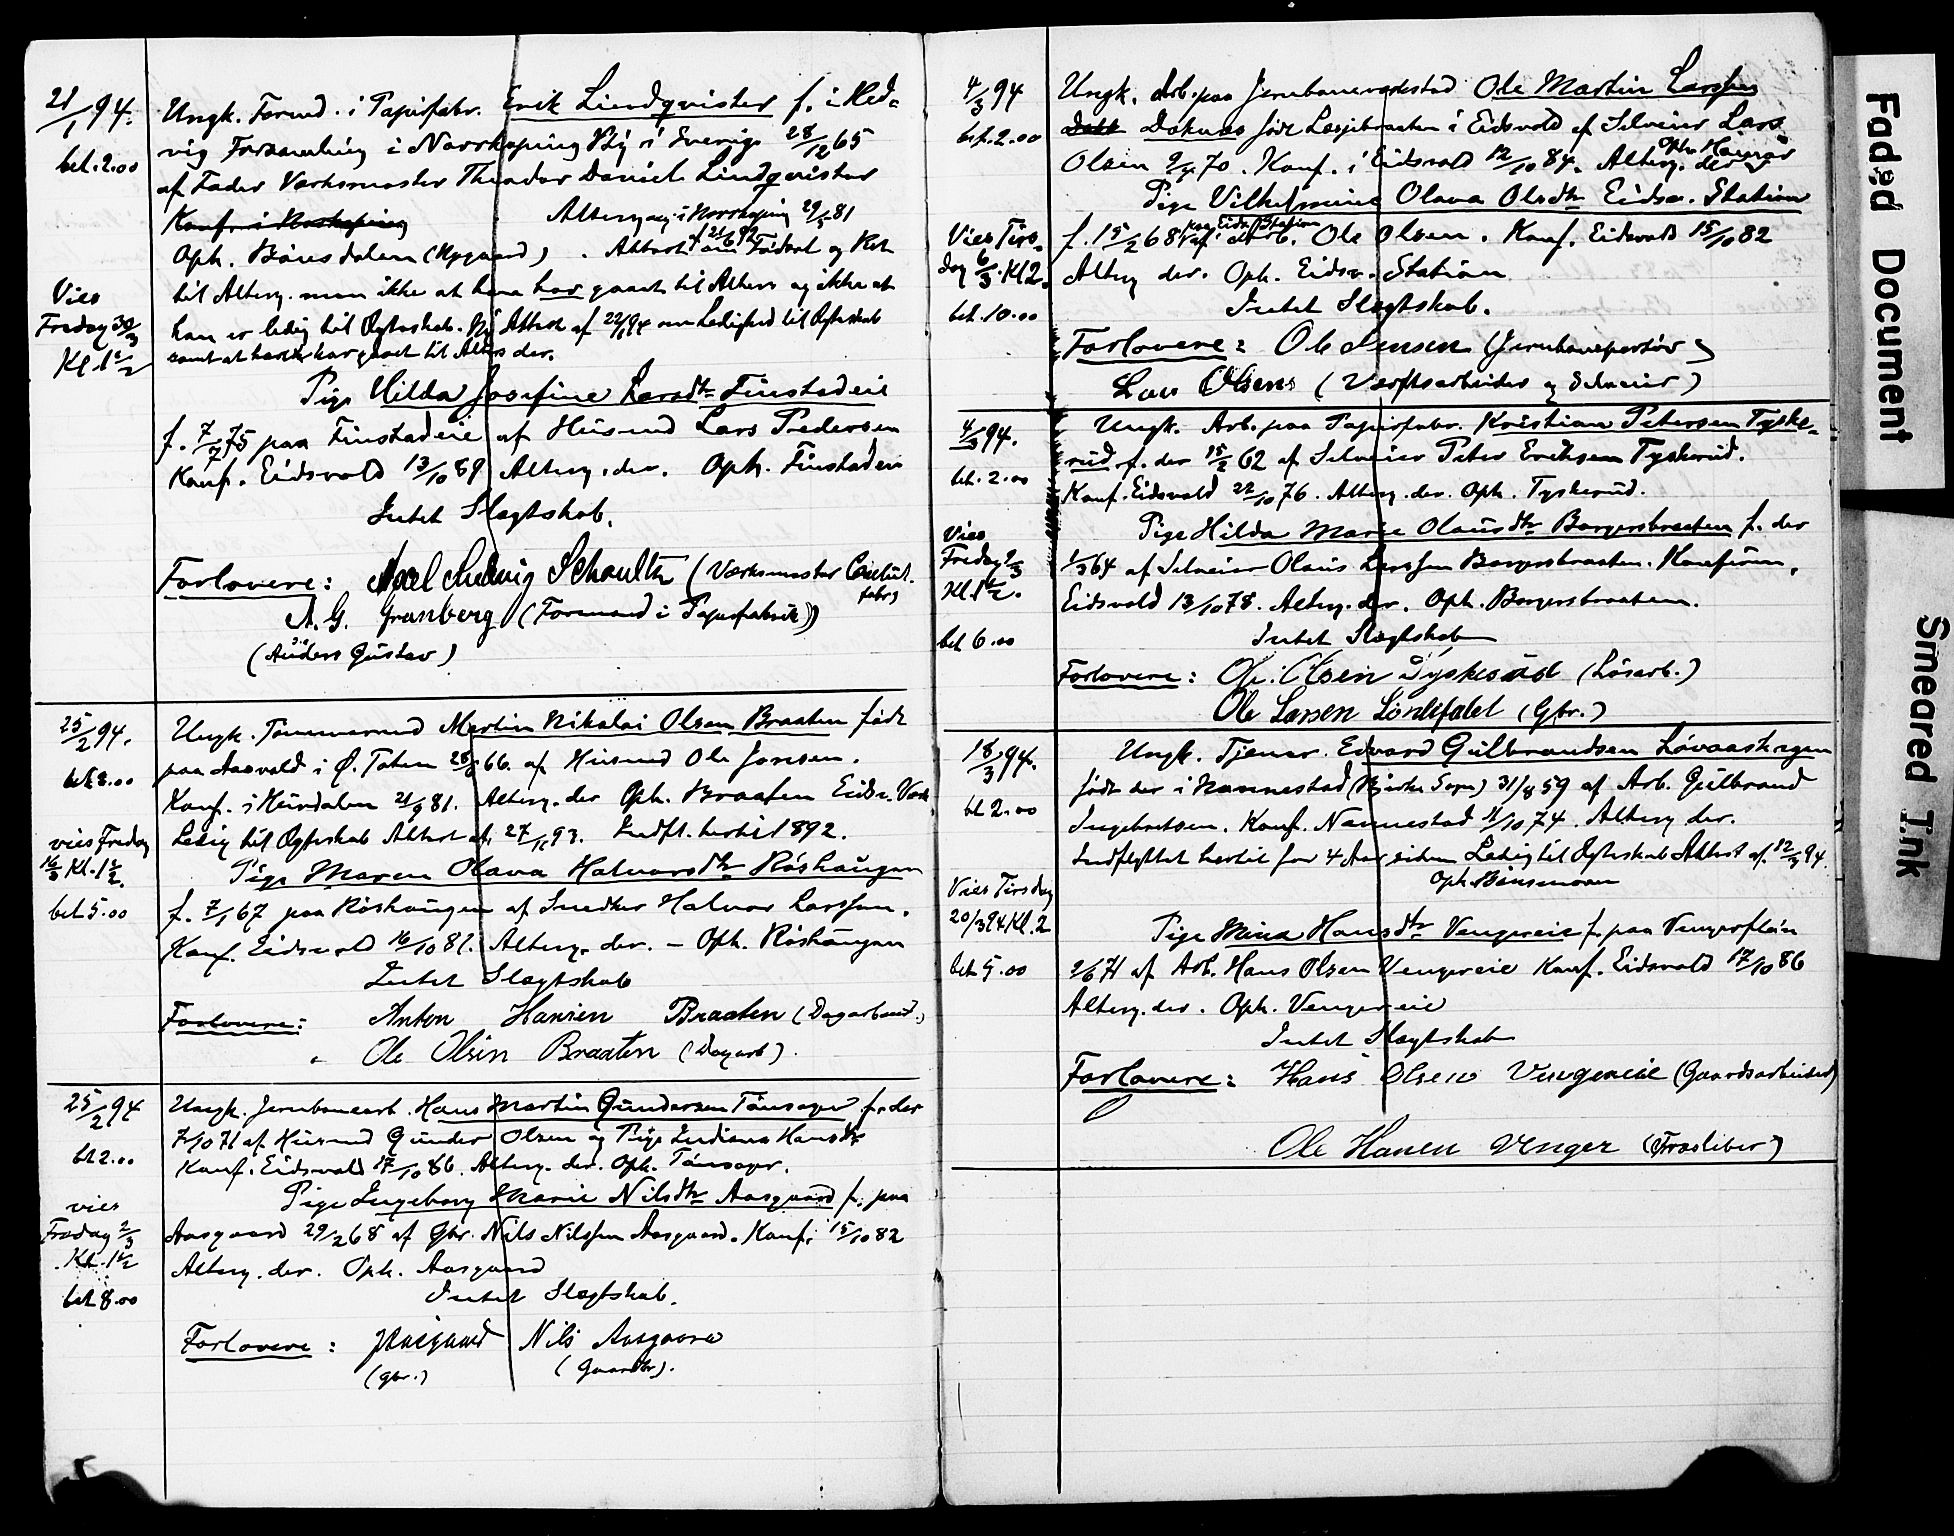 21/1 94.
bet. 2.00
Ungk. Formd. i Papirfabr. Erik Lindqvister f. i Hed-
vig Forsamling i Norrkøping By i Sverige 28/12 65
af Fader Værksmester Theodor Daniel Lindqvister
Konf. i Norrkøping Alterg. i Norrkøping 29/5 81
Oph. Bønsdalen (Nygaard). Attest af om Fødsel og Ret
til Alterg. men ikke at han har gaaet til Alters og ikke at
han er ledig til Ægteskab. Ny Attest af 22/2 94 om Ledighed til Ægteskab
samt at han har gaaet til Alters der.
Vies
Fredag 30/3
Kl. 1 1/2
Pige Hilda Josefine Larsdtr Finstadeie
f. 7/7 75 paa Finstadeie af Husmd Lars Pedersen
Konf. Eidsvold 13/10 89 Alterg. der. Oph. Finstadeie
Intet Slægtskab.
Forlovere: Axel Ludvig Schoultz (Værksmester Cellul.
fabr)
A. G. Granberg (Formand i Papirfabrik)
(Anders Gustav)
25/2 94.
bet 3.00
Ungk. Tømmermd Martin Nikolai Olsen Braaten født
paa Aasvald i Ø. Toten 66. af Husmd Ole Jonsen.
Konf. i Hurdalen 21/9 81. Alterg. der Oph. Braaten Eidsv. Værk
Ledig til Ægteskab Attest af. 27/11 93. Indfl. hertil 1892.
vies Fredag
16/3 Kl. 1 1/2.
bet 5.00
Pige Maren Olava Halvorsdtr Røshaugen
f. 7/1 67 paa Røshaugen af Snedker Halvor Larssen.
Konf. Eidsvold 16/10 81. Alterg. der. – Oph. Røshaugen
Intet Slægtskab
Forlovere: Anton Hansen Braaten (Dagarbeid.)
" Ole Olsen Braaten (Dagarb).
25/2 94
bet 2.00
Ungk. Jernbanearb. Hans Martin Gundersen Tønsager f. der
7/10 71 af Husmd Gunder Olsen og Pige Indiana Hansdtr
Konf. Eidsvold 17/10 86. Alterg. der. Oph. Tønsager.
vies
Fredag 2/3
Kl. 1 1/2
bet 8.00
Pige Ingeborg Marie Nilsdtr Aasgaard f. paa
Aasgaard 29/2 68 af Gbr. Nils Nilssen Aasgaard. Konf. 15/10 82
Alterg. der. Oph. Aasgaard
Intet Slægtskab.
Forlovere: Aasgaard Nils Aasgaard
(gbr.) (Gaardbr).
4/3 94
bet. 2.00
Ungk. Arb. paa Jernbaneværksted Ole Martin Larssen
Doknæs født Læsjebraaten i Eidsvold af Selveier Lars
Olsen 70. Konf. i Eidsvold 12/10 84. Alterg. der
Oph. Hamar
Pige Vilhelmine Olava Olsdtr Eidsv. Station
Vies Tirs-
dag 6/3. Kl 2.
bet. 10.00
f. 15/2 68 paa Eidsv. Station af Arb. Ole Olsen. Konf. Eidsvold 15/10 82
Alterg der. Oph. Eidsv. Station
Intet Slægtskab.
Forlovere: Ole Jensen (Jernbaneportør)
Lars Olsens (Værftsarbeider og Selveier)
4/3 94.
bet. 2.00
Ungk. Arb. paa Papirfabr. Kristian Petersen Tyske-
rud f. der 15/2 62 af Selveier Peter Eriksen Tyskerud.
Konf. Eidsvold 22/10 76. Alterg. der. Oph. Tyskerud.
Vies
Fredag 9/3
Kl. 1 1/2.
bet 6.00
Pige Hilda Marie Olausdtr Borgersbraaten f. der
1/3 64 af Selveier Olaus Larssen Borgersbraaten. Konfirm.
Eidsvold 13/10 78. Alterg. der. Oph. Borgersbraaten.
Intet Slægtskab
Forlovere: Ole Olsen Tyskerud (Løsarb.)
Ole Larsen Løndefalet (Gbr.)
18/3 94.
bet 2.00
Ungk. Tjener. Edvard Gulbrandsen Løvaashagen
født der i Nannestad (Bjerke Sogn) 31/8 59 af Arb. Gulbrand
Ingebretsen. Konf. Nannestad 11/10 74. Alterg der.
Indflyttet hertil for 4 Aar siden Ledig til Ægteskab Attest af. 12/3 94.
Oph. Bønsmoen
Vies Tirsdag
20/3 94 Kl. 2
bet 5.00
Pige Mina Hansdtr Vengereie f. paa Vengerfløin
9/6 71 af Arb. Hans Olsen Vengereie Konf. Eidsvold 17/10 86
Alterg. der. Oph. Vengereie
Intet Slægtskab
Forlovere: Hans Olsen Vengereie (Gaardsarbeider)
Ole Hansen Venger (Træsliber)
Faded Document
Smeared Ink